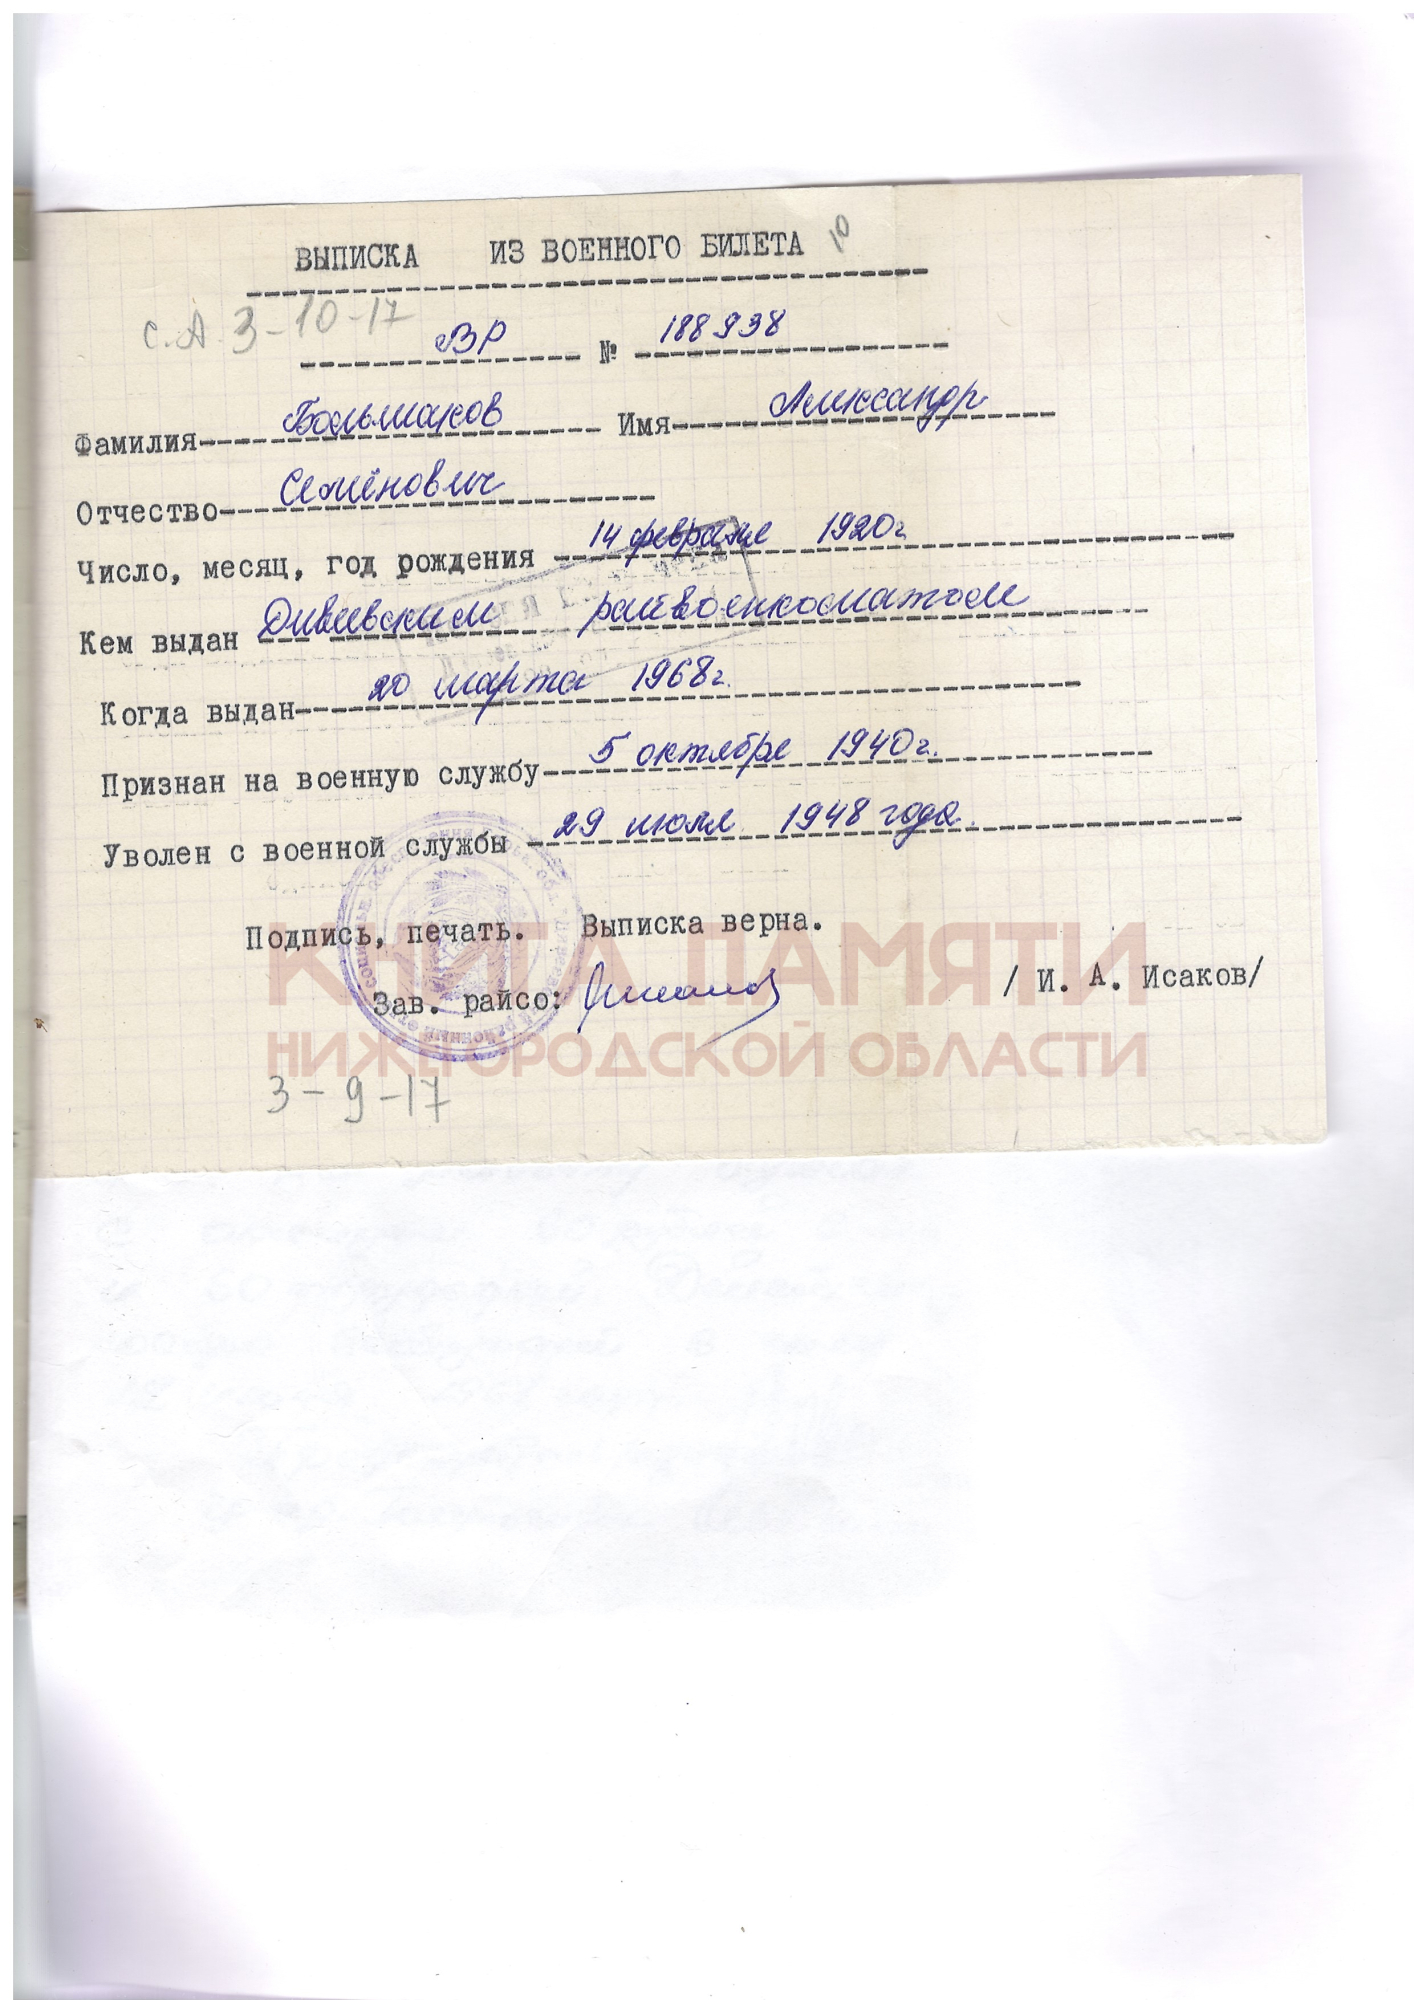 ВЫПИСКА ИЗ ВОЕННОГО БИЛЕТА 10
С.А. 3-10-17
ВР № 188938
Фамилия Большаков Имя Александр
Отчество Семёнович
Число, месяц, год рождения 14 февраля 1920г
Кем выдан Дивеевским райвоенкоматом
Когда выдан 20 марта 1968г.
Признан на военную службу 5 октября 1940г.
Уволен с военной службы 29 июля 1948 года.
Подпись, печать. Выписка верна.
КНИГА ПАМЯТИ
Зав. райсо: / И. А. Исаков/
НИЖЕГОРОДСКОЙ ОБЛАСТИ
3-9-17